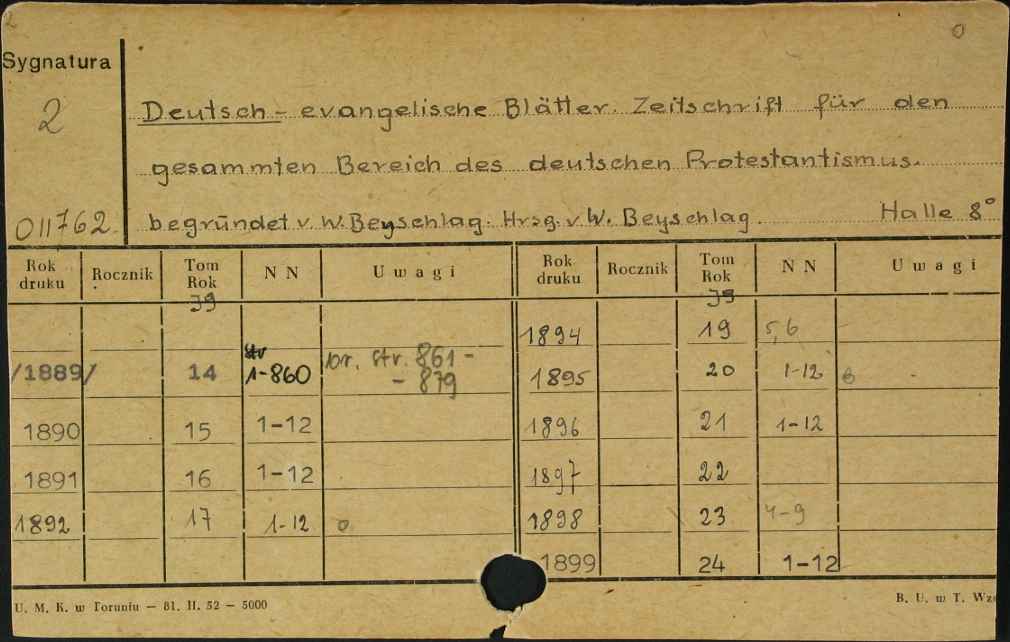 O
Sygnatura
2
Deutsch - evangelische Blätter. Zeitschrift für den
gesammten Bereich des deutschen Protestantismus.
011762.
begründet v. W. Beyschlag. Hrsg. v. W. Beyschlag. Halle 8°
Rok druku Rocznik Tom Rok NN Uwagi Rok druku Rocznik Tom Rok NN Uwagi
Jg Jg
1894 19 5,6
/1889/ 14 str 1-860 br. str. 861 - - 879
1895 20 1-12
1890 15 1-12
1896 21 1-12
1891 16 1-12
1897 22
1892 17 1-12 o
1898 23 4-9
1899 24 1-12
U. M. K. w Toruniu — 81. II. 52 — 5000
B. U. w T. Wz